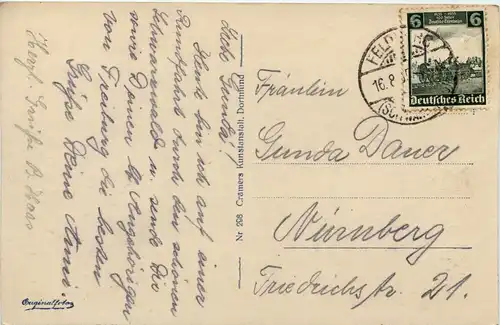 Liebe Gunda!
Heute bin ich auf einer
Rundfahrt durch den schönen
Schwarzwald u. sende Dir
sowie Deinen lb. Angehörigen
von Freiburg die besten
Grüße Deine Anni.
Herzl. Grüße B. Haas
Originalfoto
Nr 258 Cramers Kunstanstalt, Dortmund
6 6
Deutsches Reich
FELD
16.8.
(SCHWARZW
Fräulein
Gunda Dauer
Nürnberg
Friedrichstr. 21.